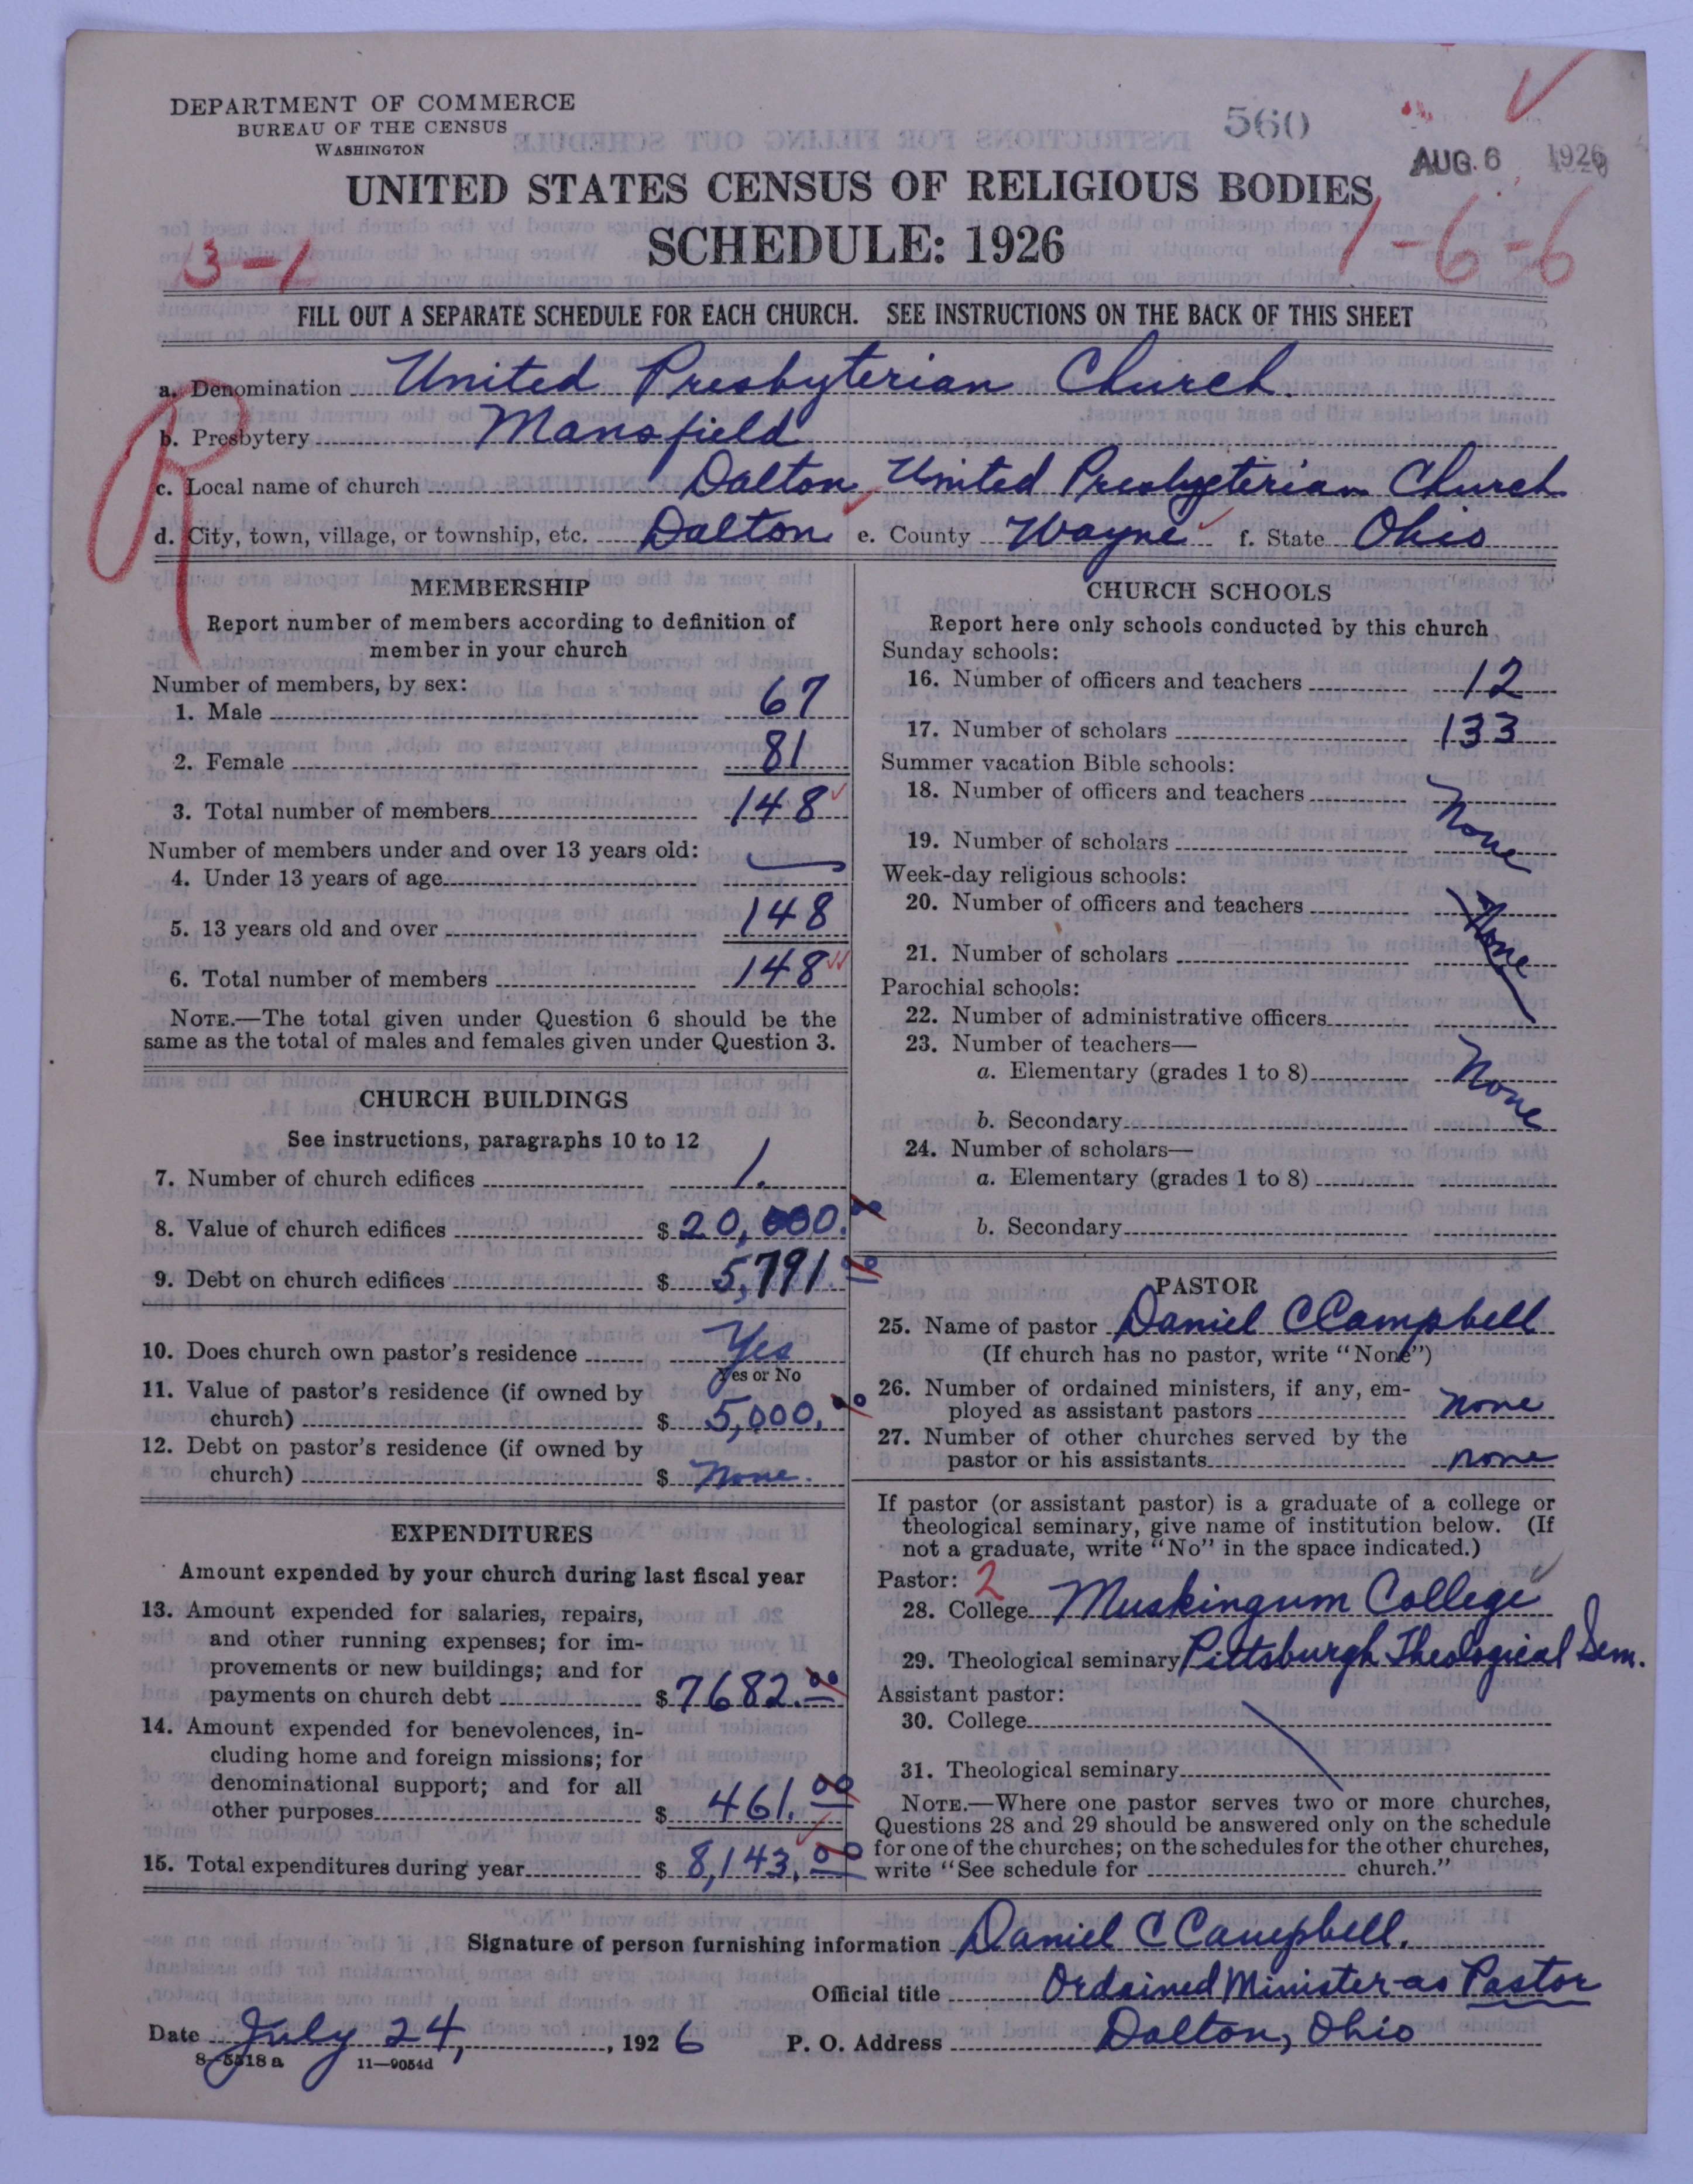 DEPARTMENT OF COMMERCE
BUREAU OF THE CENSUS
WASHINGTON
560
AUG. 6 1926
UNITED STATES CENSUS OF RELIGIOUS BODIES
SCHEDULE: 1926
3-1
1-6-6
FILL OUT A SEPARATE SCHEDULE FOR EACH CHURCH. SEE INSTRUCTIONS ON THE BACK OF THIS SHEET
R
a. Denomination United Presbyterian Church.
b. Presbytery Mansfield
c. Local name of church Dalton United Presbyterian Church
d. City, town, village, or township, etc. Dalton e. County Wayne f. State Ohio
MEMBERSHIP
Report number of members according to definition of
member in your church
Number of members, by sex:
1. Male 67
2. Female 81
3. Total number of members 148
Number of members under and over 13 years old:
4. Under 13 years of age —
5. 13 years old and over 148
6. Total number of members 148
NOTE.—The total given under Question 6 should be the
same as the total of males and females given under Question 3.
CHURCH BUILDINGS
See instructions, paragraphs 10 to 12
7. Number of church edifices 1.
8. Value of church edifices $ 20,000.00
9. Debt on church edifices $ 5,791.00
10. Does church own pastor's residence Yes
Yes or No
11. Value of pastor's residence (if owned by
church) $ 5,000.00
12. Debt on pastor's residence (if owned by
church) $ None.
EXPENDITURES
Amount expended by your church during last fiscal year
13. Amount expended for salaries, repairs,
and other running expenses; for im-
provements or new buildings; and for
payments on church debt $ 7682.00
14. Amount expended for benevolences, in-
cluding home and foreign missions; for
denominational support; and for all
other purposes $ 461.00
15. Total expenditures during year $ 8,143.00
CHURCH SCHOOLS
Report here only schools conducted by this church
Sunday schools:
16. Number of officers and teachers 12
17. Number of scholars 133
Summer vacation Bible schools:
18. Number of officers and teachers None
19. Number of scholars
Week-day religious schools:
20. Number of officers and teachers None
21. Number of scholars
Parochial schools:
22. Number of administrative officers
23. Number of teachers—
a. Elementary (grades 1 to 8) None
b. Secondary
24. Number of scholars—
a. Elementary (grades 1 to 8)
b. Secondary
PASTOR
25. Name of pastor Daniel C Campbell
(If church has no pastor, write "None")
26. Number of ordained ministers, if any, em-
ployed as assistant pastors none
27. Number of other churches served by the
pastor or his assistants none
If pastor (or assistant pastor) is a graduate of a college or
theological seminary, give name of institution below. (If
not a graduate, write "No" in the space indicated.)
Pastor: 2
28. College Muskingum College
29. Theological seminary Pittsburgh Theological Sem.
Assistant pastor:
30. College
31. Theological seminary
NOTE.—Where one pastor serves two or more churches,
Questions 28 and 29 should be answered only on the schedule
for one of the churches; on the schedules for the other churches,
write "See schedule for church."
Signature of person furnishing information Daniel C Campbell.
Official title Ordained Minister as Pastor
Date July 24, 1926 P. O. Address Dalton, Ohio
8-5518 a 11—9054d